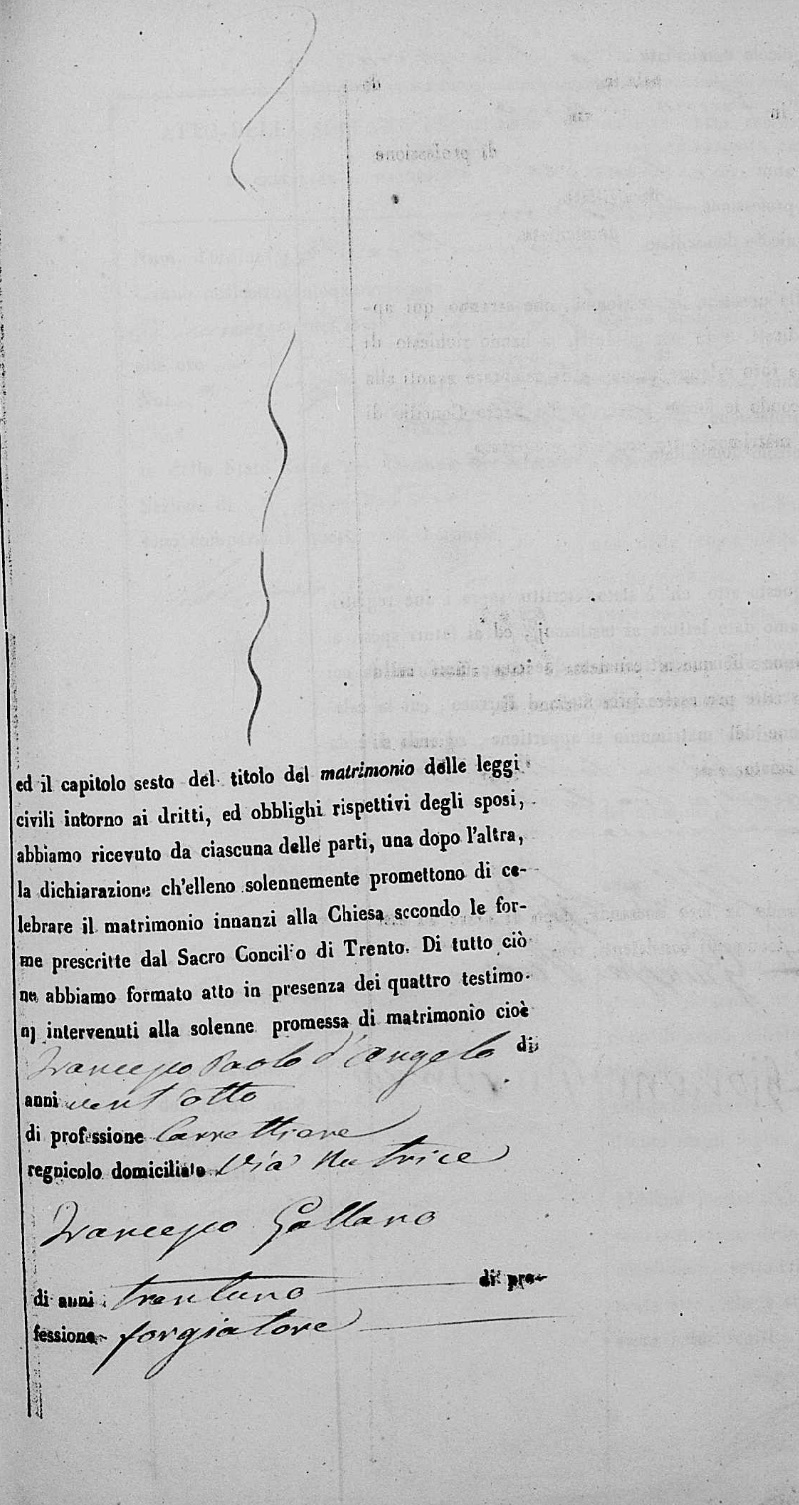 ed il capitolo sesto del titolo del matrimonio delle leggi
civili intorno ai dritti, ed obblighi rispettivi degli sposi,
abbiamo ricevuto da ciascuna delle parti, una dopo l'altra,
la dichiarazione ch'elleno solennemente promettono di ce-
lebrare il matrimonio innanzi alla Chiesa secondo le for-
me prescritte dal Sacro Concilio di Trento. Di tutto ciò
ne abbiamo formato atto in presenza dei quattro testimo-
nj intervenuti alla solenne promessa di matrimonio cioè
Francesco Paolo d'Angelo di
anni vent'otto
di professione Carrettiere
regnicolo domiciliato Via Nutrice
Francesco Gallano
di anni trentuno di pro-
fessione forgiatore